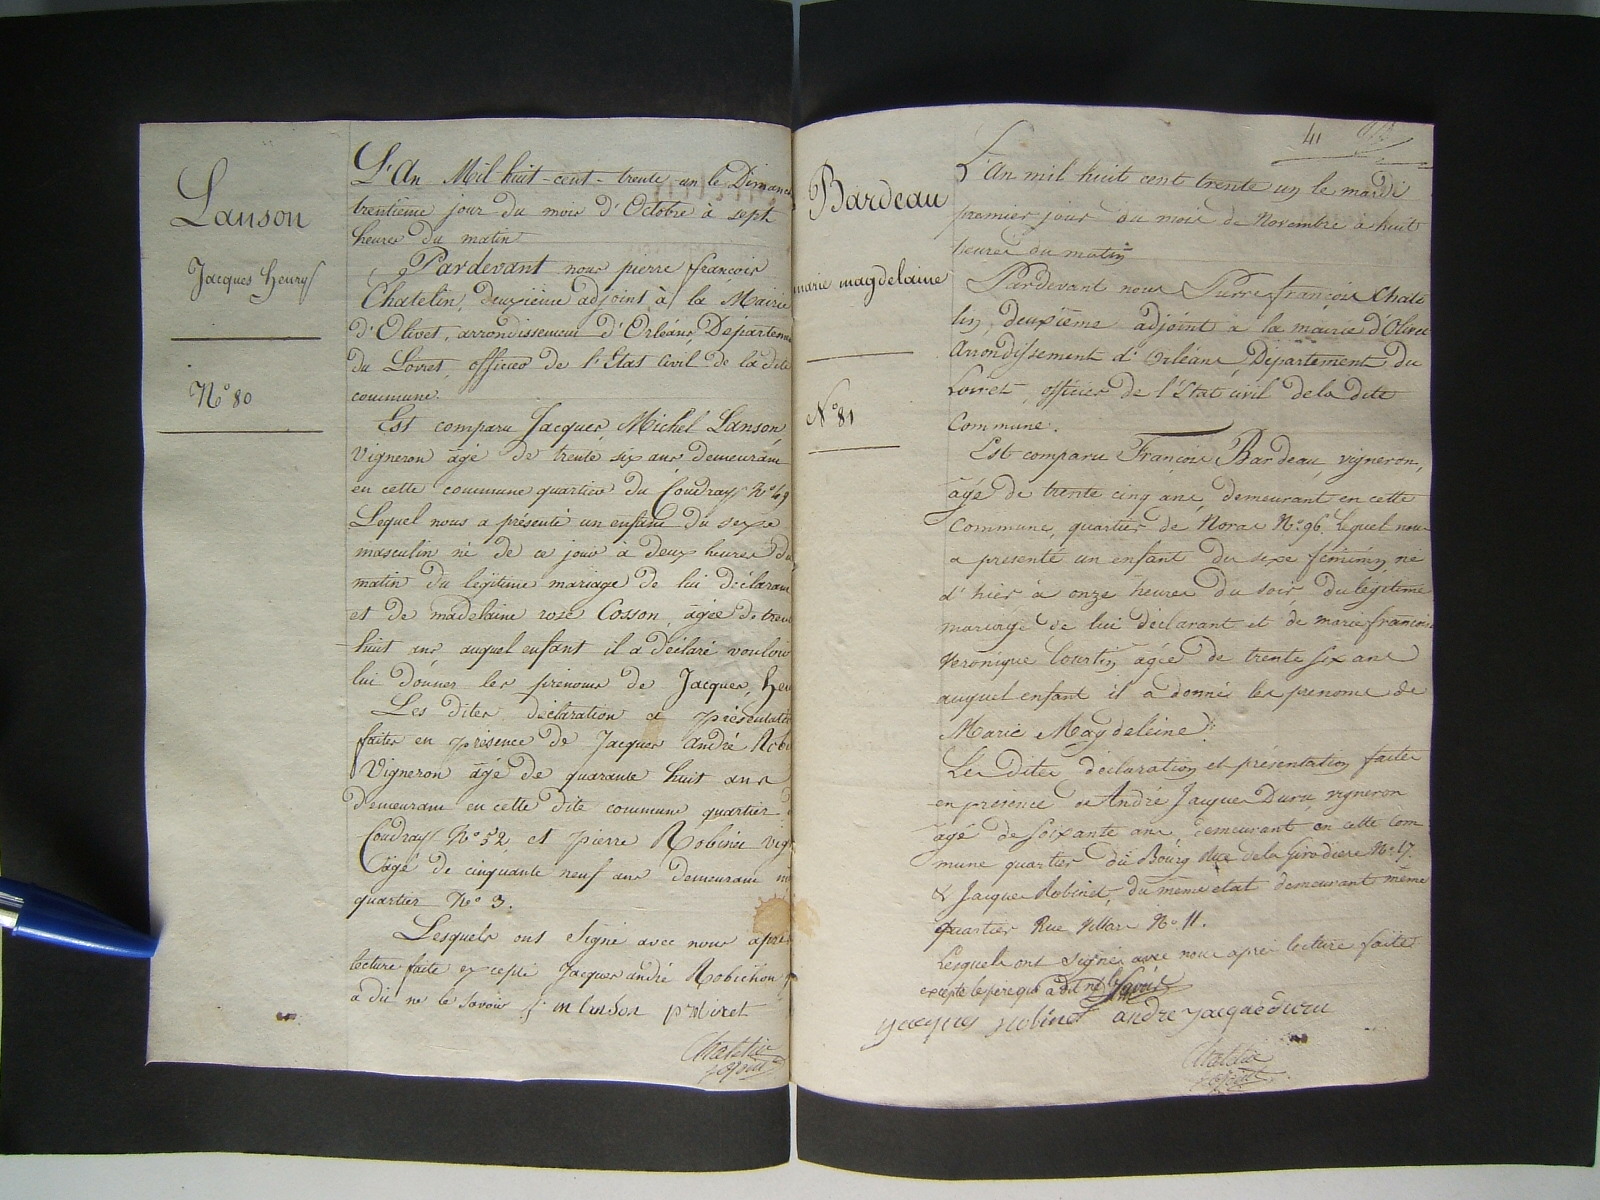 Lanson
Jacques henry
N° 80
L'An Mil huit-cent-trente-un le Dimanc
trentième jour du mois d'Octobre à sept
heures du matin
Pardevant nous pierre françois
Chatelin, deuxième adjoint à la Mairie
d'Olivet, arrondissement d'Orléans, Départem
du Loiret, officier de l'Etat civil de la dite
commune.
Est comparu Jacques, Michel Lanson
Vigneron âgé de trente six ans demeurant
en cette commune quartier du Coudray N° 49
Lequel nous a présenté un enfant du sexe
masculin né de ce jour à deux heures du
matin du légitime mariage de lui déclarant
et de madelaine rose Cosson, âgée de trent
huit ans auquel enfant il a déclaré vouloir
lui donner les prénoms de Jacques, Hen
Les dites déclaration et présentatio
faites en présence de Jacques andré Robi
Vigneron âgé de quarante huit ans
demeurant en cette dite commune quartier
Coudray N° 52 et pierre Robinée vig
âgé de cinquante neuf ans demeurant
quartier N° 3.
Lesquels ont signé avec nous après
lecture faite excepté Jacques andré Robichon
a dit ne le savoir
Chatelin
adjoint
41
Bardeau
marie magdelaine
N° 81
L'An mil huit cent trente un le mardi
premier jour du mois de Novembre à huit
heures du matin
Pardevant nous Pierre françois Chate
lin, deuxième adjoint à la mairie d'Olivet
Arrondissement d'Orléans Département du
Loiret, officier de l'Etat civil de la dite
Commune.
Est comparu François Bardeau, vigneron,
âgé de trente cinq ans, demeurant en cette
Commune, quartier de Noras N° 96. Lequel nous
a presenté un enfant du sexe féminin, né
d'hier à onze heures du soir du légitime
mariage de lui déclarant et de marie françoise
Veronique Courtin, agée de trente six ans
auquel enfant il a donné les prenoms de
Marie Magdeleine.
Les dites déclaration et présentation faites
en présence de André Jacques Duru, vigneron
âgé de soixante ans, demeurant en cette Com
mune quartier du Bourg Rue de la Girodiere N° 17.
& Jacques Robinet, du même etat demeurant même
quartier Rue N° 11.
Lesquels ont signés avec nous après lecture faite
excepté le père qui a dit ne le savoir
jacques robinet andré jacque duru
Chatelin
adjoint